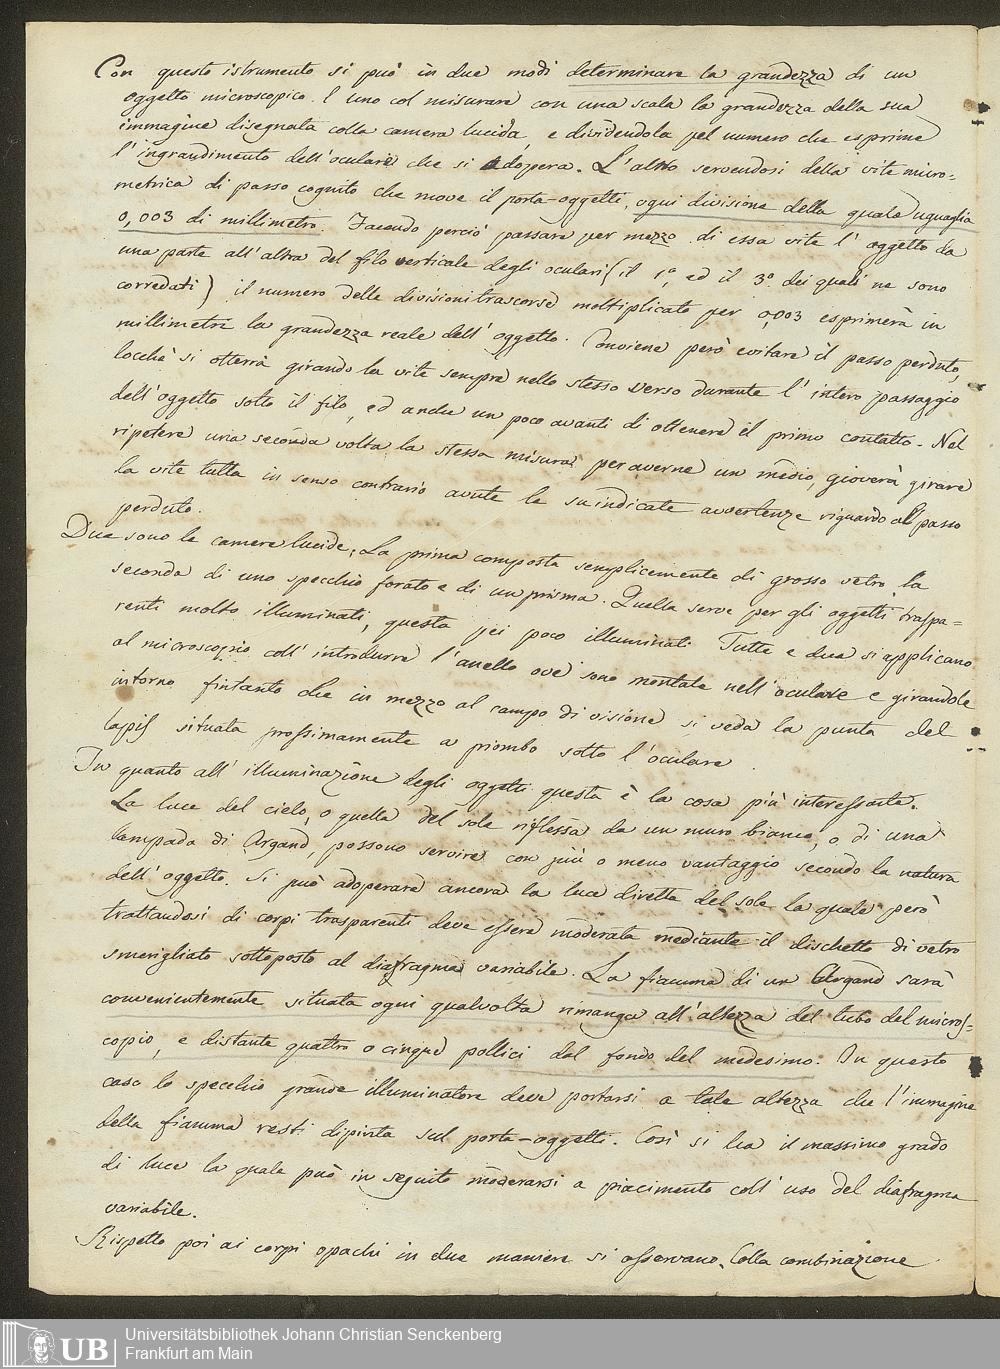 Con questo istrumento si può in due modi determinare la grandezza di un
oggetto microscopico. l'uno col misurare con una scala la grandezza della sua
immagine disegnata colla camera lucida e dividendola pel numero che esprime
l'ingrandimento dell'oculare che si adópera. L'altro servendosi della vite micro=
metrica di passo cognito che move il porta-oggetti, ogni divisione della quale uguaglia
0,003 di millimetro. Facendo perciò passare per mezzo di essa vite l'oggetto da
una parte all'altra del filo verticale degli oculari (il 1º, ed il 3º dei quali ne sono
corredati) il numero delle divisioni trascorse moltiplicato per 0,003 esprimerà in
millimetri la grandezza reale dell'oggetto. Conviene però evitare il passo perduto,
locchè si otterrà girando la vite sempre nello stesso verso durante l'intero passaggio
dell'oggetto sotto il filo, ed anche un poco avanti di ottenere il primo contatto. Nel
ripetere una seconda volta la stessa misura per averne un medio, gioverà girare
la vite tutta in senso contrario avute le suindicate avvertenze riguardo al passo
perduto.
Due sono le camere lucide. La prima composta semplicemente di grosso vetro, la
seconda di uno specchio forato e di un prisma. Quella serve per gli oggetti traspa=
renti molto illuminati, questa pei poco illuminati. Tutte e due si applicano
al microscopio coll'introdurre l'anello ove sono montate nell'oculare e girandole
intorno fintanto che in mezzo al campo di visione si veda la punta del
lapis situata prossimamente a piombo sotto l'oculare.
In quanto all'illuminazione degli oggetti questa è la cosa più interessante.
La luce del cielo, o quella del sole riflessa da un muro bianco, o di una
lampada di Argand, possono servire con più o meno vantaggio secondo la natura
dell'oggetto. Si può adoperare ancora la luce diretta del sole la quale però
trattandosi di corpi trasparenti deve essere moderata mediante il dischetto di vetro
smerigliato sottoposto al diafragma variabile. La fiamma di un Argand sarà
convenientemente situata ogni qualvolta rimanga all'altezza del tubo del micros-
copio, e distante quattro o cinque pollici dal fondo del medesimo. In questo
caso lo specchio grande illuminatore deve portarsi a tale altezza che l'immagine
della fiamma resti dipinta sul porta-oggetti. Così si ha il massimo grado
di luce la quale può in seguito moderarsi a piacimento coll'uso del diafragma
variabile.
Rispetto poi ai corpi opachi in due maniere si osservano. Colla combinazione
UB
Universitätsbibliothek Johann Christian Senckenberg
Frankfurt am Main